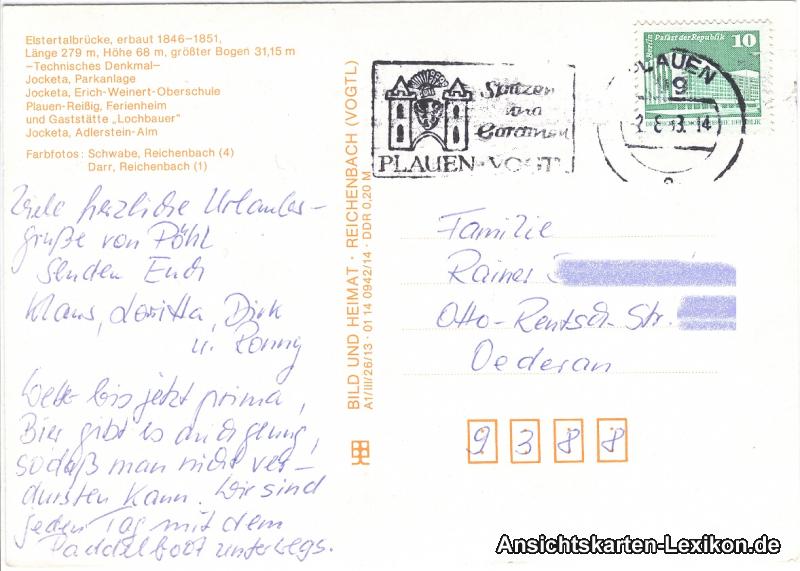 Elstertalbrücke, erbaut 1846-1851,
Länge 279 m, Höhe 68 m, größter Bogen 31,15 m
-Technisches Denkmal-
Jocketa, Parkanlage
Jocketa, Erich-Weinert-Oberschule
Plauen-Reißig, Ferienheim
und Gaststätte „Lochbauer"
Jocketa, Adlerstein-Alm
Farbfotos: Schwabe, Reichenbach (4)
Darr, Reichenbach (1)
Viele herzliche Urlaubs-
grüße von Pöhl
senden Euch
Klaus, Loritta, Dirk
u. Ronny
Wetter bis jetzt prima,
Bier gibt es auch genug,
sodaß man nicht ver-
dursten kann. Wir sind
jeden Tag mit dem
Paddelboot unterwegs.
BILD UND HEIMAT · REICHENBACH (VOGTL)
A1/III/26/13 · 01 14 0942/14 · DDR 0,20 M
Spitzen
und
Gardinen
PLAUEN-VOGTL
PLAUEN
Berlin Palast der Republik
10
Familie
Rainer
Otto-Rentsch-Str.
Oederan
9 3 8 8
Ansichtskarten-Lexikon.de